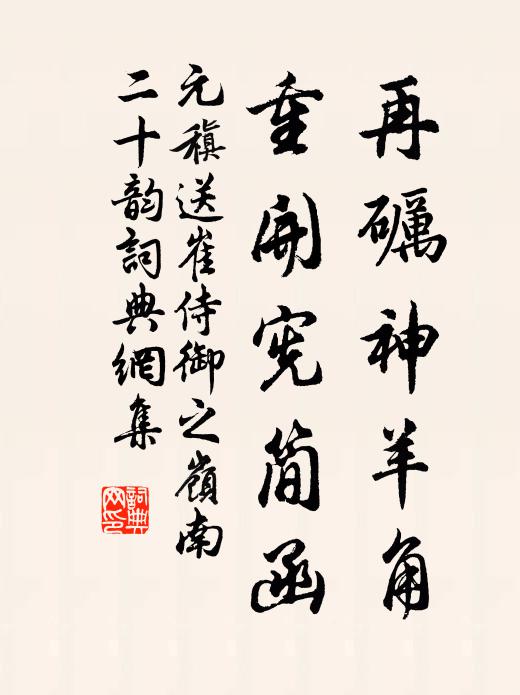 再礪神羊角
重開憲簡函
元稹送崔侍御之嶺南
二十韵詞典網集
詞典網印